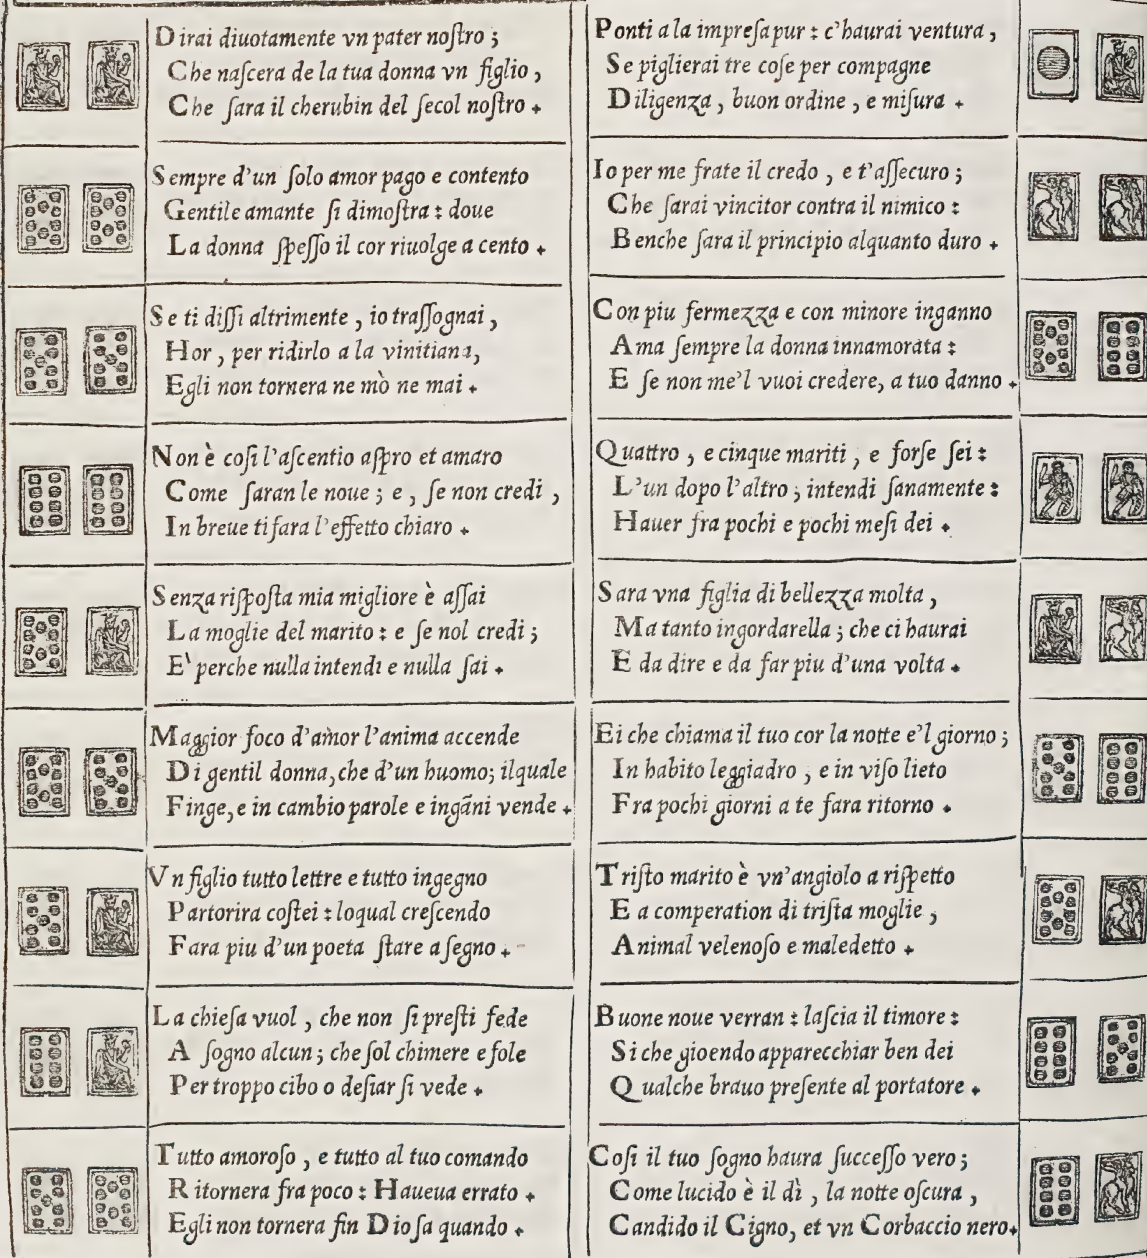 Dirai diuotamente vn pater noſtro ;
Che naſcera de la tua donna vn figlio ,
Che ſara il cherubin del ſecol noſtro .
Sempre d'un ſolo amor pago e contento
Gentile amante ſi dimoſtra : doue
La donna ſpeſſo il cor riuolge a cento .
Se ti diſſi altrimente , io traſſognai ,
Hor , per ridirlo a la vinitiana,
Egli non tornera ne mò ne mai .
Non è coſi l'aſcentio aſpro et amaro
Come ſaran le noue ; e , ſe non credi ,
In breue ti fara l'effetto chiaro .
Senza riſpoſta mia migliore è aſſai
La moglie del marito : e ſe nol credi ;
E' perche nulla intendi e nulla ſai .
Maggior foco d'amor l'anima accende
Di gentil donna, che d'un huomo; ilquale
Finge, e in cambio parole e ingãni vende .
Vn figlio tutto lettre e tutto ingegno
Partorira coſtei : loqual creſcendo
Fara piu d'un poeta ſtare a ſegno .
La chieſa vuol , che non ſi preſti fede
A ſogno alcun ; che ſol chimere e fole
Per troppo cibo o deſiar ſi vede .
Tutto amoroſo , e tutto al tuo comando
Ritornera fra poco : Haueua errato .
Egli non tornera fin Dio ſa quando .
Ponti a la impreſa pur : c'haurai ventura ,
Se piglierai tre coſe per compagne
Diligenza , buon ordine , e miſura .
Io per me frate il credo , e t'aſſecuro ;
Che ſarai vincitor contra il nimico :
Benche ſara il principio alquanto duro .
Con piu fermezza e con minore inganno
Ama ſempre la donna innamorata :
E ſe non me'l vuoi credere, a tuo danno .
Quattro , e cinque mariti , e forſe ſei :
L'un dopo l'altro ; intendi ſanamente :
Hauer fra pochi e pochi meſi dei .
Sara vna figlia di bellezza molta ,
Ma tanto ingordarella ; che ci haurai
E da dire e da far piu d'una volta .
Ei che chiama il tuo cor la notte e'l giorno ;
In habito leggiadro , e in viſo lieto
Fra pochi giorni a te fara ritorno .
Triſto marito è vn'angiolo a riſpetto
E a comperation di triſta moglie ,
Animal velenoſo e maledetto .
Buone noue verran : laſcia il timore :
Si che gioendo apparecchiar ben dei
Qualche brauo preſente al portatore .
Coſi il tuo ſogno haura ſucceſſo vero ;
Come lucido è il dì , la notte oſcura ,
Candido il Cigno, et vn Corbaccio nero.